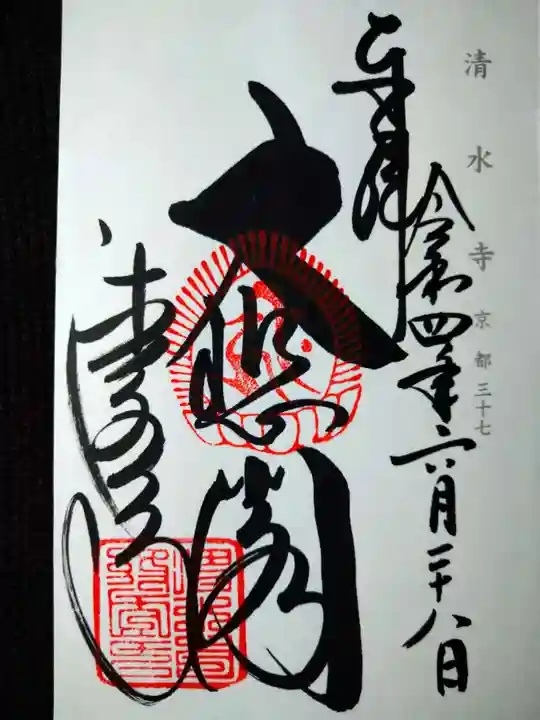 清水寺 京都三十七
奉拝
令和四年六月二十八日
大悲閣
清水寺